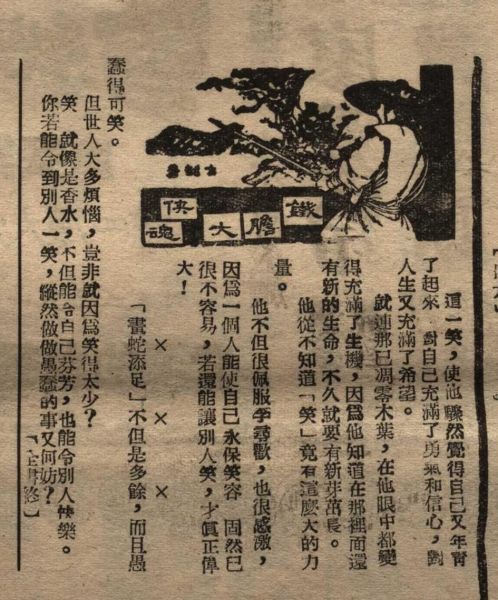 鐵膽大俠魂
這一笑，使他驟然覺得自己又年青
了起來，對自己充滿了勇氣和信心，對
人生又充滿了希望。
就連那已凋零木葉，在他眼中都變
得充滿了生機，因為他知道在那裡面還
有新的生命，不久就要有新芽萬長。
他從不知道「笑」竟有這麼大的力
量。
他不但很佩服孚尋歡，也很感激，
因為一個人能使自己永保笑容，固然已
很不容易，若還能讓別人笑，才真正偉
大！
×　×　×
「畫蛇添足」不但是多餘，而且愚
蠢得可笑。
但世人大多煩惱，豈非就因為笑得太少？
笑，就像是香水，不但能令自己芬芳，也能令別人快樂。
你若能令到別人一笑，縱然做做愚蠢的事又何妨？
「全書終」